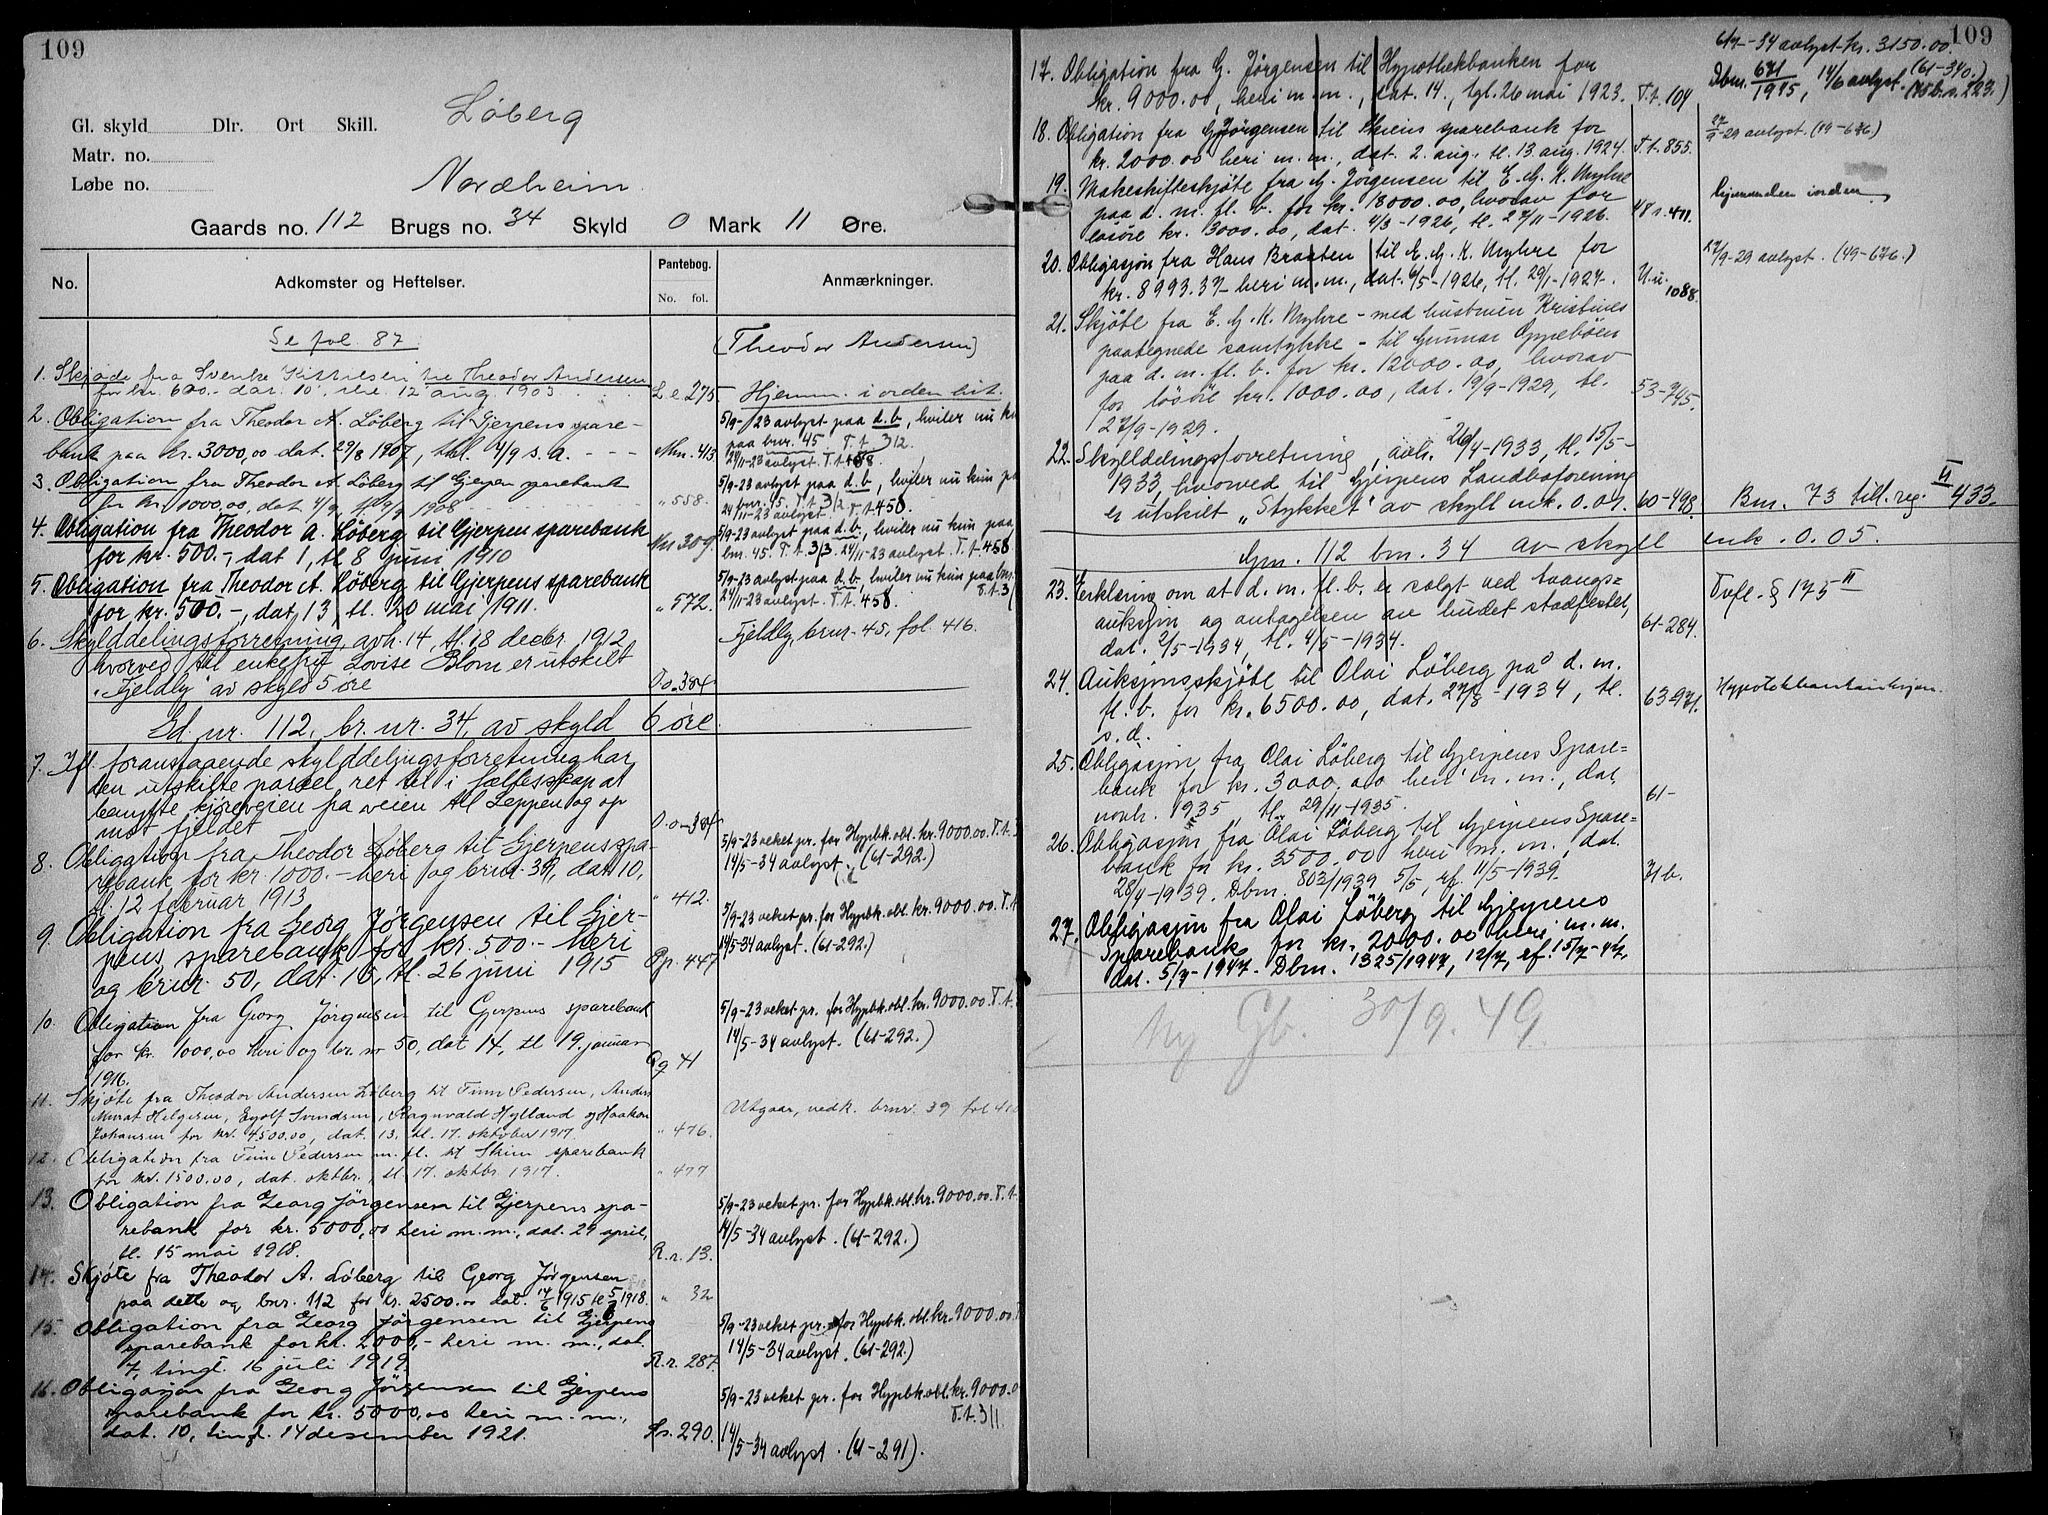 109
Løberg
Gl. skyld Dlr. Ort Skill.
Matr. no.
Løbe no.
Nordheim
Gaards no. 112 Brugs no. 34 Skyld 0 Mark 11 Øre.
No. Adkomster og Heftelser. Pantebog. No. fol. Anmærkninger.
Se fol. 87
(Theodor Andersen)
1. Skjøde fra Svenke Kittilsen til Theodor Andersen
for kr. 600.- dat. 10, thl. 12 aug. 1903 L e 275 Hjemm. i orden hit.
2. Obligation fra Theodor A. Løberg til Gjerpens spare-
bank paa kr. 3000,00 dat. 29/8 1907, thl. 4/9 s. a. - - - Mm. 413
5/9-23 avlyst paa d. b., hviler nu kun
paa bnr. 45 T. t. 312.
24/11-23 avlyst. T. t. 458.
3. Obligation fra Theodor A. Løberg til Gjerpen sparebank
for kr. 1000,00, dat 4/9, 1908 " 558.
5/9-23 avlyst paa d. b., hviler nu kun på
bnr. 45. T. t. 312
24/11-23 avlyst T. t. 458.
4. Obligation fra Theodor A. Løberg til Gjerpen sparebank
for kr. 500.-, dat 1, tl 8 juni 1910 Nn 309.
5/9-23 avlyst paa d. b., hviler nu kun paa
bnr. 45. T. t. 313. 24/11-23 avlyst. T. t. 458.
5. Obligation fra Theodor A. Løberg til Gjerpens sparebank
for kr. 500.-, dat. 13, tl. 20 mai 1911. " 572.
5/9-23 avlyst paa d. b., hviler nu kun paa bnr.
24/11-23 avlyst. T. t. 458.
6. Skylddelingsforretning, avh. 14, tl. 18 decbr. 1912,
hvorved til enkefru Lovise Blom er utskilt
"Fjeldly" av skyld 5 øre O. o. 384
Fjeldly, brnr. 45, fol. 416.
Gd. nr. 112, br. nr. 34, av skyld 6 øre.
7. Ifl. foranstaaende skylddelingsforretning har
den utskilte parcel ret til i fællesskap at
benytte kjøreveien fra veien til Leppen og op
mot fjeldet O. o. 384
8. Obligation fra Theodor Løberg til Gjerpens spa-
rebank for kr. 1000.- heri og brnr. 39, dat. 10,
tl. 12 februar 1913 " 412.
5/9-23 veket pr. for Hypbk. obl. kr. 9000.00. T. t.
14/5-34 avlyst. (61-292.)
9. Obligation fra Georg Jørgensen til Gjer-
pens sparebank for kr. 500.- heri
og brnr. 50, dat. 10, tl. 26 juni 1915 Pp. 447
5/9-23 veket pr. for Hypbk. obl. kr. 9000.00. T. t.
14/5-34 avlyst. (61-292.)
10. Obligation fra Georg Jørgensen til Gjerpens sparebank
for kr. 1000,00 heri og br. nr 50, dat 14, tl 19. januar
1916. Qq 41
5/9-23 veket pr. for Hypbk. obl. kr. 9000.00. T. t.
14/5-34 avlyst. (61-292.)
11. Skjøte fra Theodor Andersen Løberg til Finn Pedersen, Anders
Murat Helgesen, Eyolf Svendsen, Ragnvald Hylland og Haakon
Johansen for kr. 4500.00, dat. 13, tl. 17. oktober 1917. " 476.
Utgaar, vedk. brnr. 39 fol 410
12. Obligation fra Finn Pedersen m. fl. til Skien sparebank
for kr. 1500.00, dat. oktbr., tl 17. oktbr. 1917. " 477
13. Obligation fra Georg Jørgensen til Gjerpens spa-
rebank for kr. 5000,00 heri m. m., dat. 29 april,
tl. 15 mai 1918. R. r. 13.
5/9-23 veket pr. for Hypbk. obl. kr. 9000.00. T. t.
14/5-34 avlyst. (61-292.)
14. Skjøte fra Theodor A. Løberg til Georg Jørgensen
paa dette og bnr. 112 for kr. 2500.00 dat. 14/6 1915 tl 5/7 1918. " 32
15. Obligation fra Georg Jørgensen til Gjerpens
sparebank for kr. 2000,- heri m. m., dat.
7, tingl. 16 juli 1919. R. r. 287.
5/9-23 veket pr. for Hypbk. obl. kr. 9000.00 T
14/5-34 avlyst. (61-292.)
16. Obligasjon fra Georg Jørgensen til Gjerpens
sparebank for kr. 5000,00 heri m. m.,
dat. 10, tingl. 14 desember 1921. Ss. 290.
5/9-23 veket pr. for Hypbk. obl. kr. 9000.0
T. t. 311.
14/5-34 avlyst. (61-291).
109
17. Obligation fra G. Jørgensen til Hypothekbanken for
kr. 9000.00, heri m. m., dat. 14., tgl. 26 mai 1923. T. t. 104
6/7-34 avlyst kr. 3150.00.
(61-340.)
Dbnr. 671/1945, 14/6 avlyst.
18. Obligation fra G. Jørgensen til Skiens sparebank for
kr. 2000.00 heri m. m., dat. 2. aug. tl. 13 aug. 1924. T. t. 855.
27/9-29 avlyst. (49-676)
19. Makeskifteskjøte fra G. Jørgensen til E. G. K. Myhre
paa d. m. fl. b. for kr. 18000.00, hvorav for
løsøre kr. 3000.00, dat. 4/3-1926, tl. 27/11-1926. 48 s. 411.
Hjemmelen i orden
20. Obligasjon fra Hans Braaten til E. G. K. Myhre for
kr. 8993.37 heri m. m., dat. 6/5-1926, tl. 29/1-1927. U. u. 1088.
27/9-29 avlyst. (49-676.)
21. Skjøte fra E. G. K. Myhre - med hustruen Kristines
paategnede samtykke - til Gunnar Oppebøen
paa d. m. fl. b. for kr. 12000.00, hvorav
for løsøre kr. 1000.00, dat. 19/9-1929, tl.
27/9-1929. 53-745.
22. Skylddelingsforretning, avh. 26/4-1933, tl. 15/5-
1933, hvorved til Gjerpens Landboforening
er utskilt "Stykket" av skyld mk. 0.01. 60-498. Bnr. 73 till. reg. II 433.
Gnr. 112 bnr. 34 av skyld mk. 0.05.
23. Erklæring om at d. m. fl. b. er solgt ved tvangs=
auksjon og antagelsen av budet stadfestet,
dat. 2/5-1934, tl. 4/5-1934. 61-284. Tvfl. § 175 II
24. Auksjonsskjøte til Olai Løberg på d. m.
fl. b. for kr. 6500.00, dat. 27/8-1934, tl.
s. d. 63-971.
25. Obligasjon fra Olai Løberg til Gjerpens Spare=
bank for kr. 3000.00 heri m. m., dat.
novb. 1935, tl. 29/11-1935. 61-
26. Obligasjon fra Olai Løberg til Gjerpens Spare=
bank for kr. 3500.00 heri m. m., dat.
28/4-1939. Dbnr. 803/1939 5/5, rf. 11/5-1939. 71 b.
27. Obligasjon fra Olai Løberg til Gjerpens
Sparebank for kr. 2000.00 heri m. m.
dat. 5/7-1947. Dbnr. 1325/1947, 12/7, rf. 15/7-47.
Ny Gb. 30/9. 49.